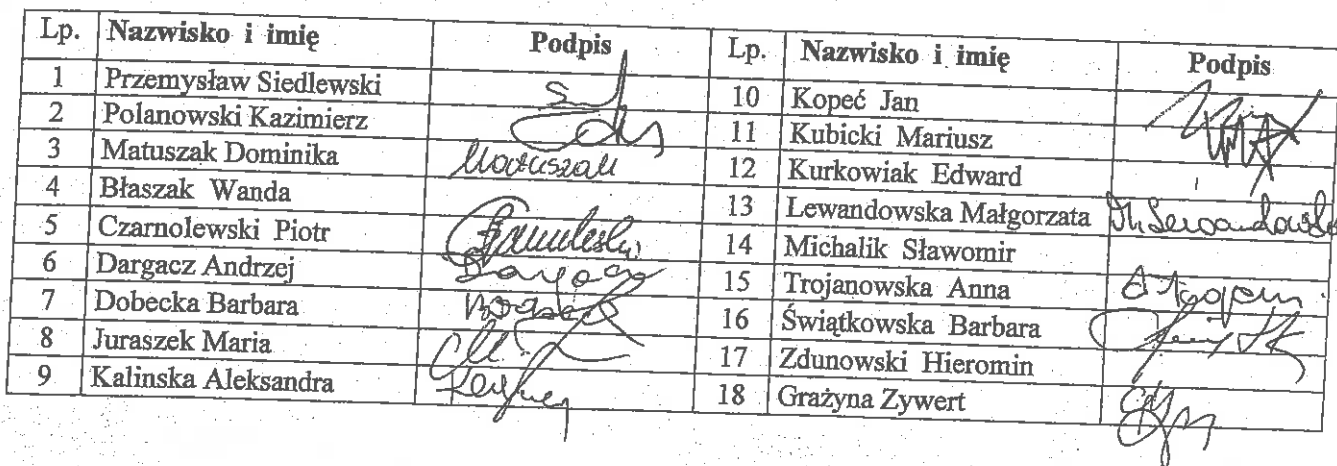 Lp. Nazwisko i imię Podpis Lp. Nazwisko i imię Podpis
1 Przemysław Siedlewski 10 Kopeć Jan
2 Polanowski Kazimierz 11 Kubicki Mariusz
3 Matuszak Dominika Matuszak 12 Kurkowiak Edward
4 Błaszak Wanda 13 Lewandowska Małgorzata M. Lewandowska
5 Czarnolewski Piotr 14 Michalik Sławomir
6 Dargacz Andrzej 15 Trojanowska Anna
7 Dobecka Barbara 16 Świątkowska Barbara
8 Juraszek Maria 17 Zdunowski Hieromin
9 Kalinska Aleksandra 18 Grażyna Zywert